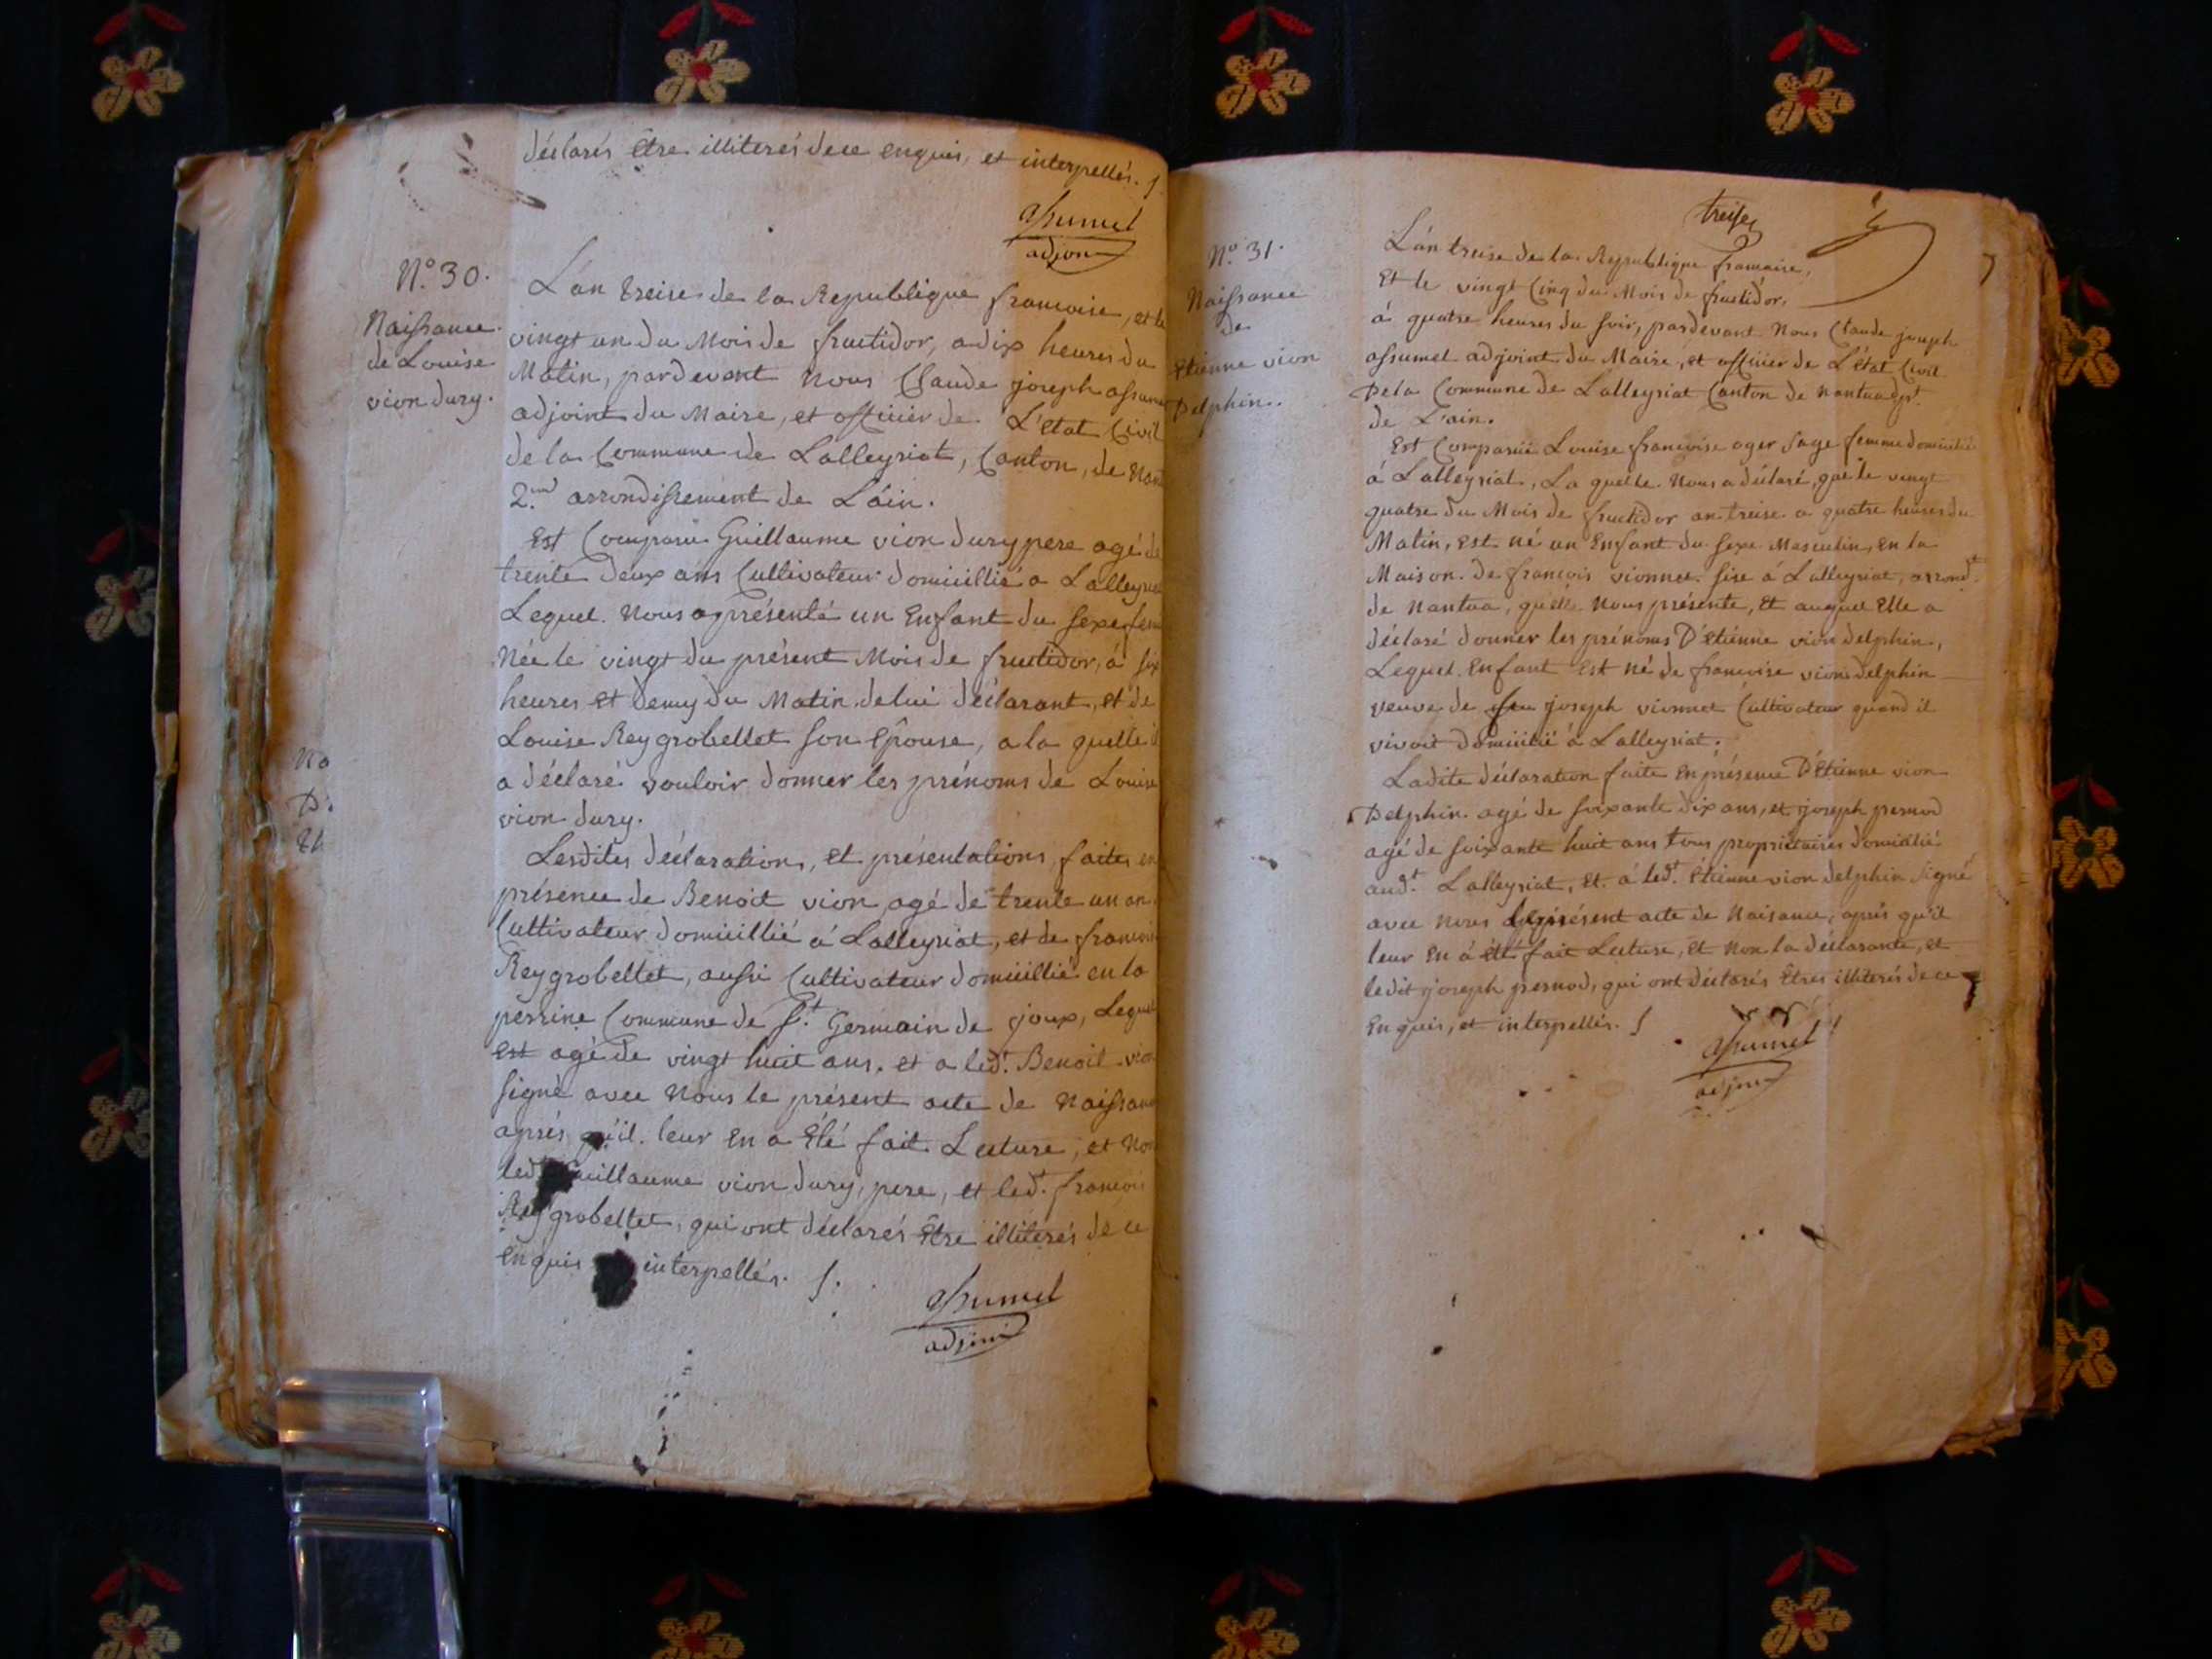 déclarés être illiterés dece enquis, et interpellés.
assumel
adjoint
N.o 30.
Naissance
de Louise
vion dury.
L'an treise de la Republique francoise, et le
vingt un du Mois de fructidor, a dix heures du
Matin, pardevant nous Claude joseph assumel
adjoint du Maire, et officier de L'Etat Civil
de la Commune de Lalleyriat, Canton, de Nant
2.me arrondissement de L'ain.
Est Comparu Guillaume vion dury pere agé de
trente deux ans Cultivateur domicillié a Lalleyriat
Lequel Nous a présenté un Enfant du sexe fem
Née le vingt du présent Mois de fructidor, à six
heures et demy du Matin, de lui déclarant, et de
Louise Reygrobellet son Epouse, a la quelle il
a déclaré vouloir donner les prénoms de Louise
vion dury.
Lesdites déclarations, et présentations, faites en
présence de Benoit vion agé de trente un an
Cultivateur domicillié à Lalleyriat, et de francois
Reygrobellet, aussi Cultivateur domicillié en la
perrine Commune de S.t Germain de joux, Lequel
est agé de vingt huit ans. et a led.t Benoit vion
signé avec Nous le présent acte de Naissance
après qu'il leur en a été fait Lecture, et Non
led.t Guillaume vion dury, pere, et led.t francois
Reygrobellet, qui ont déclarés être illiterés de ce
enquis interpellés.
assumel
adjoint
No
D'
Et
treise
N.o 31.
Naissance
de
Etienne vion
Delphin.
L'an treise de la Republique francaise,
Et le vingt Cinq du Mois de fructidor,
à quatre heures du soir, pardevant Nous Claude joseph
assumel adjoint du Maire, et officier de L'état Civil
De la Commune de Lalleyriat Canton de Nantua dp.t
de L'ain.
Est Comparue Louise francoise ager sage femme domicilié
à Lalleyriat, La quelle Nous a déclaré, que le vingt
quatre du Mois de fructidor an treise a quatre heures du
Matin, est né un Enfant du sexe Masculin, en la
Maison de francois vionnet sise à Lalleyriat, arrond.t
de Nantua, qu'elle Nous présente, Et auquel Elle a
déclaré donner les prénoms D'Etiénne vion delphin,
Lequel Enfant Est Né de francoise vion delphin
veuve de feu joseph vionnet Cultivateur quand il
vivoit domicilié à Lalleyriat.
Ladite déclaration faite en présence D'Etienne vion
Delphin agé de soixante dix ans, et joseph pernod
agé de soixante huit ans tous propriétaires domicilié
aud.t Lalleyriat, Et à led.t Etienne vion delphin signé
avec Nous le présent acte de Naisance, après qu'il
leur en à été fait Lecture, Et Non la déclarante, et
ledit joseph pernod, qui ont déclarés Etres illiterés de ce
Enquis, et interpellés.
assumel
adjoint